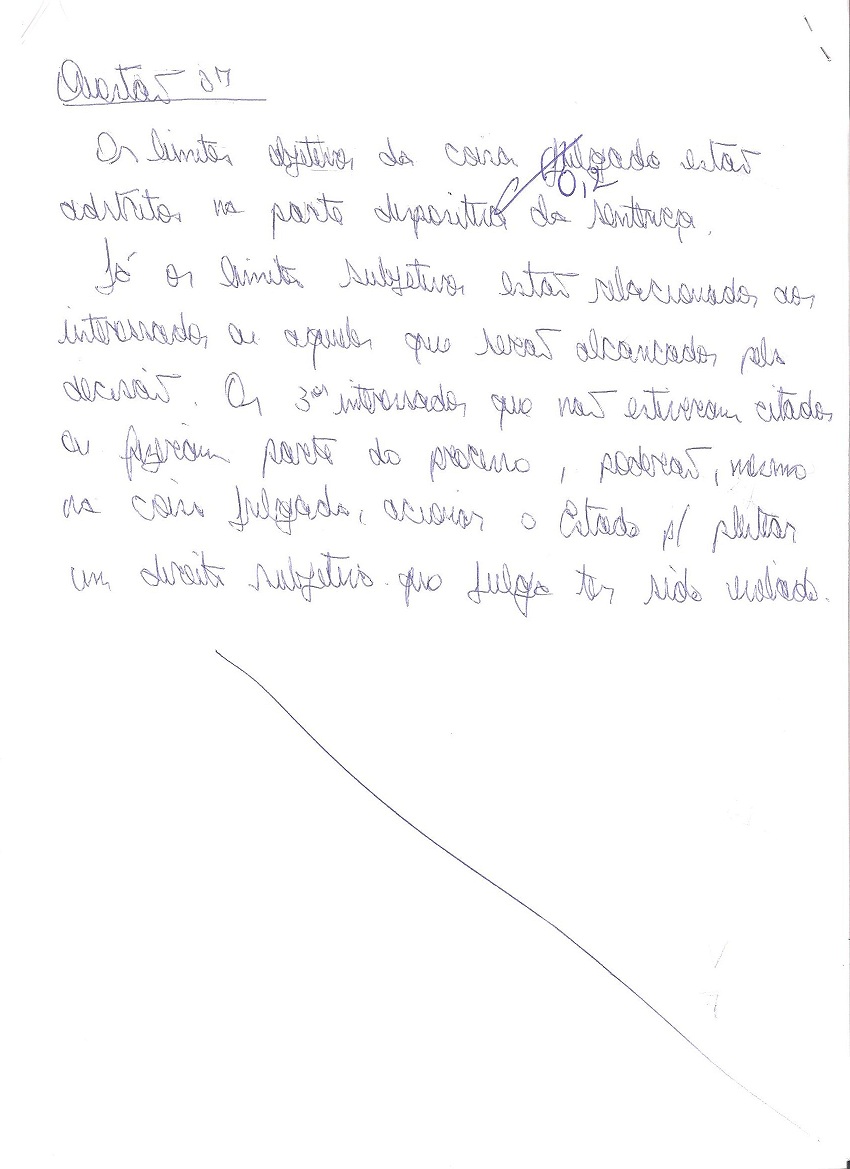 Questão 07
Os limites objetivos da coisa julgada estão
0,2
adstritos na parte dispositiva da sentença.
Já os limites subjetivos estão relacionados aos
interessados ou aqueles que serão alcançados pela
decisão. Os 3ºs interessados que não estiveram citados
ou fizeram parte do processo, poderão, mesmo
na coisa julgada, acionar o Estado p/ pleitear
um direito subjetivo que julga ter sido violado.